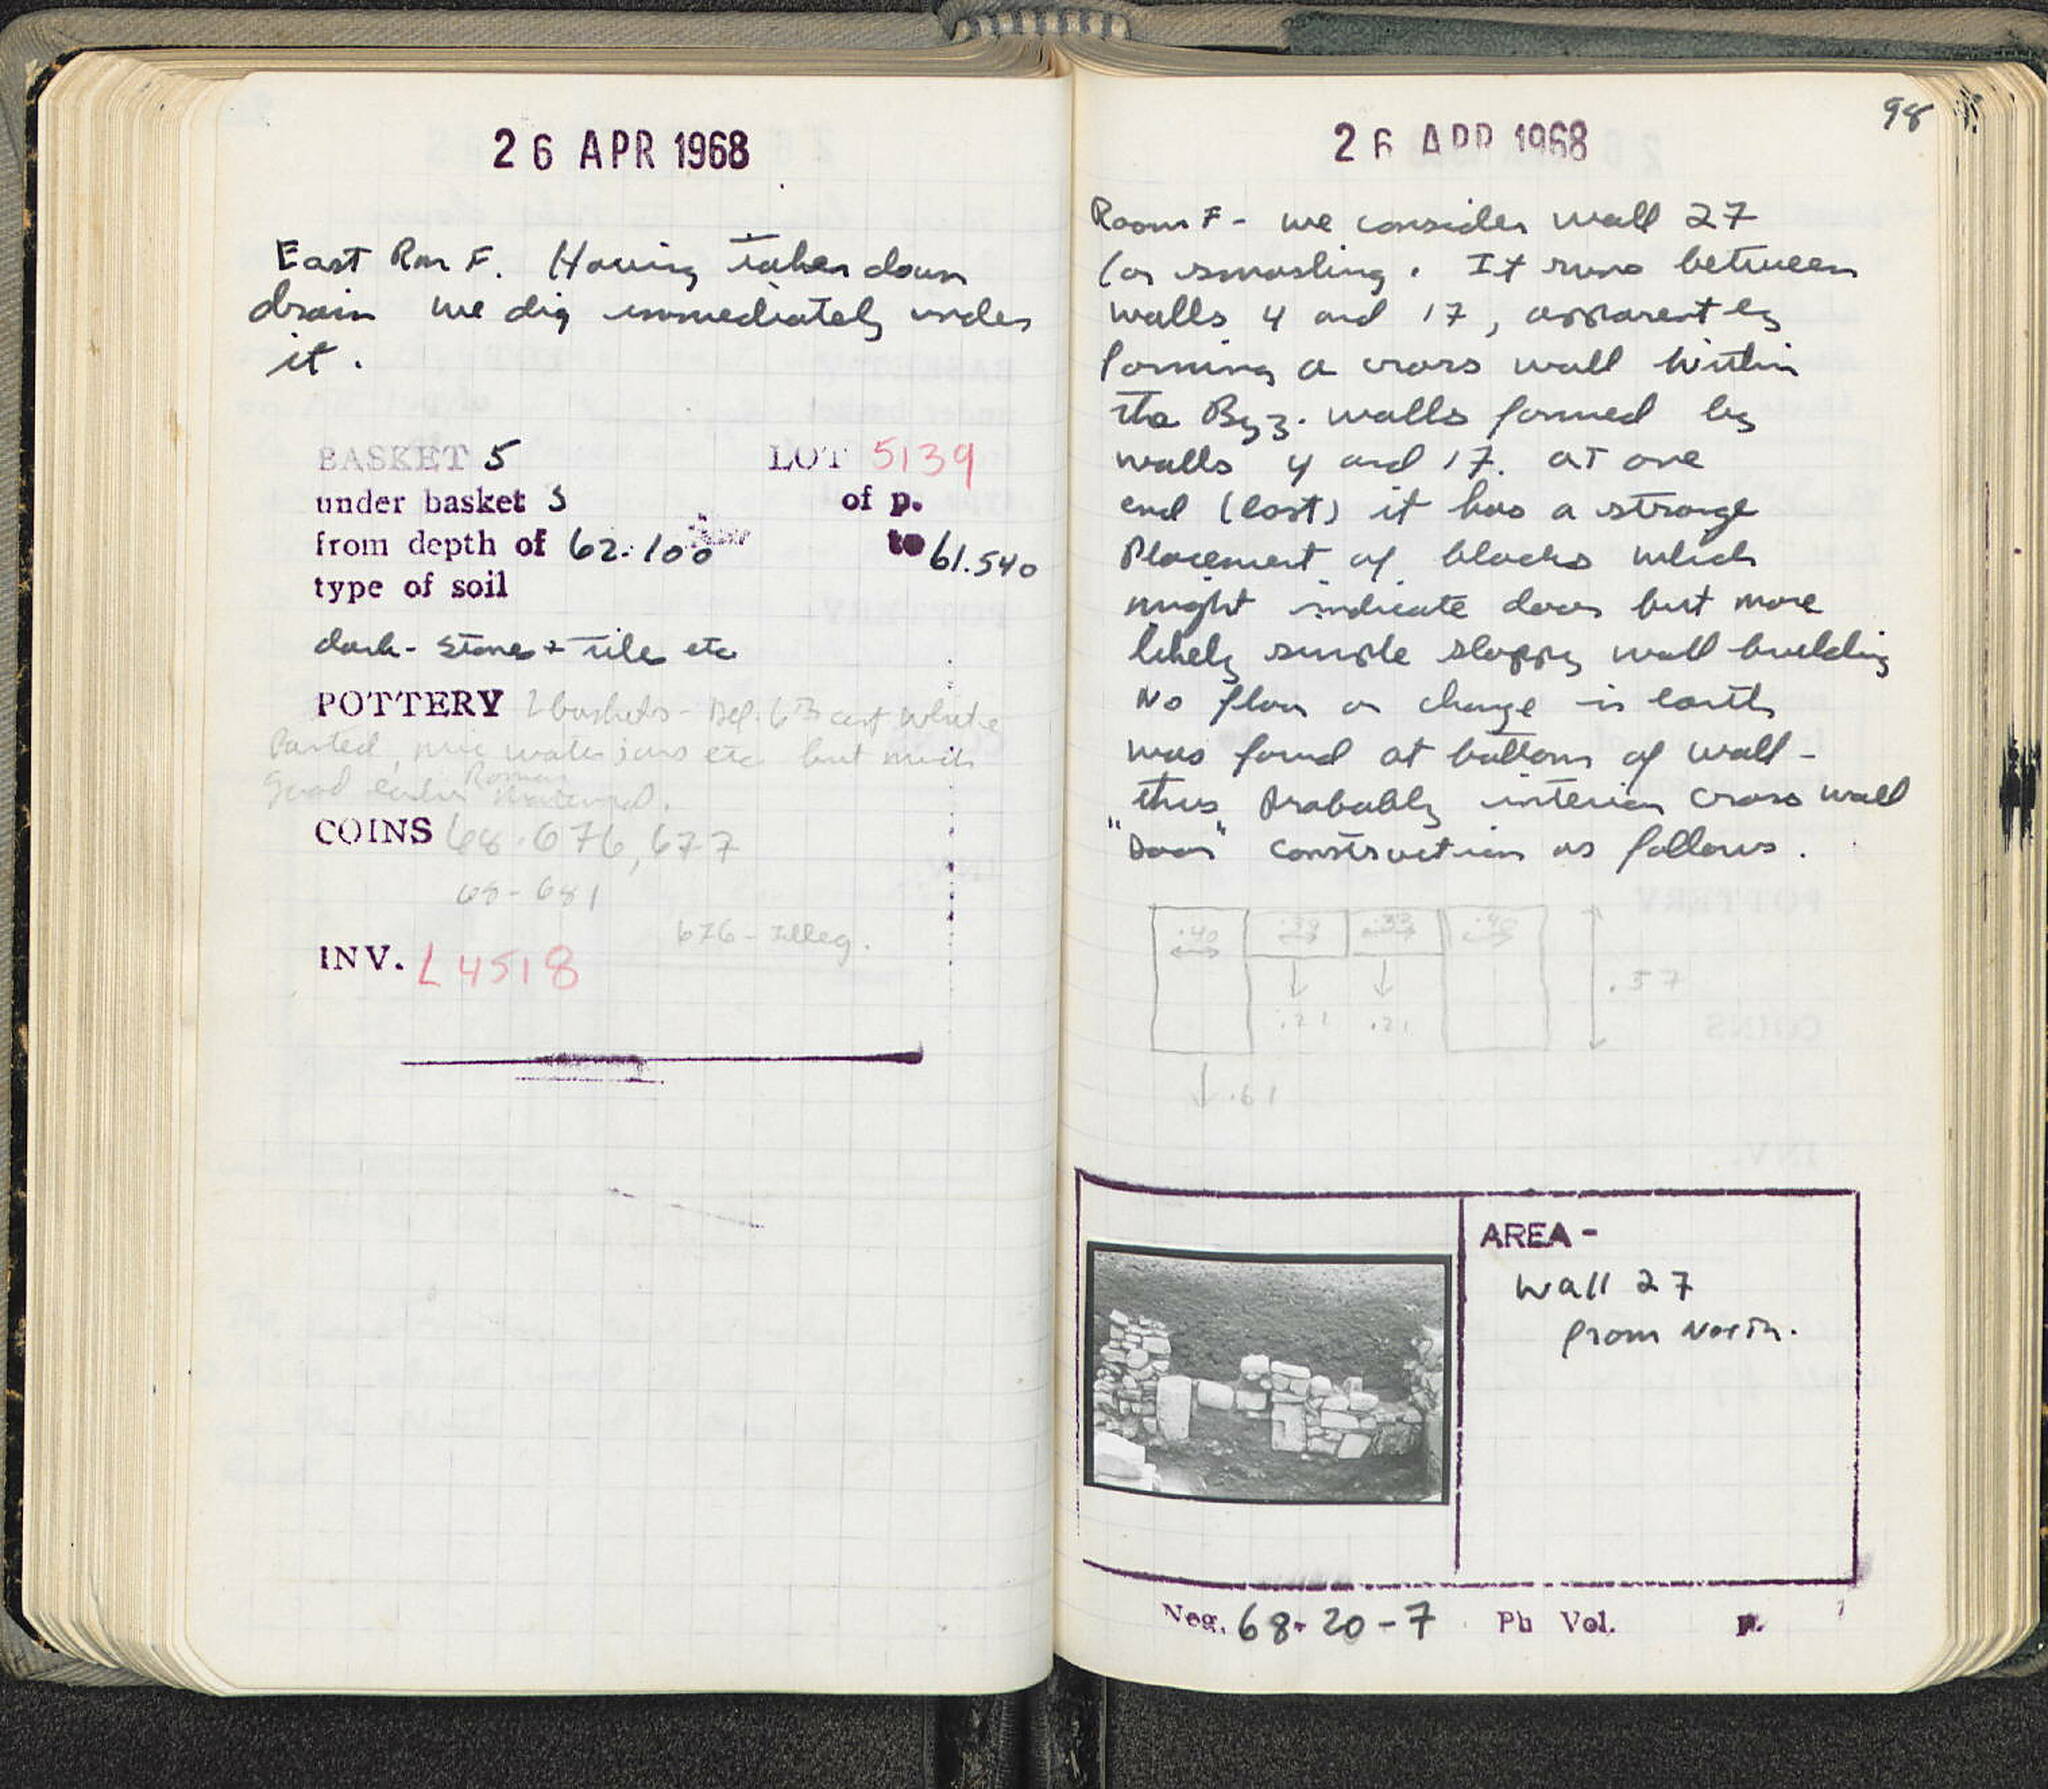 26 APR 1968
East Rm F. Having taken down
drain we dig immediately under
it.
BASKET 5 LOT 5139
under basket 3 of p.
from depth of 62.100 to 61.540
type of soil
dark - stones + tiles etc
POTTERY 2 baskets - Def. 6th cent white
Pasted, mic water jars etc but much
good earlier Roman material.
COINS 68.676, 677
68-681
676 - Illeg.
INV. L4518
98
26 APR 1968
Room F - we consider wall 27
for smashing. It runs between
walls 4 and 17, apparently
forming a cross wall within
the Byz. walls formed by
walls 4 and 17. at one
end (east) it has a strange
placement of blocks which
might indicate door but more
likely simple sloppy wall building
No floor or change in earth
was found at bottom of wall -
thus probably interior cross wall
"Door" construction as follows.
.40 .39 .33 .40
.57
.21 .21
.61
AREA -
Wall 27
from North.
Neg. 68-20-7 Ph Vol. p.